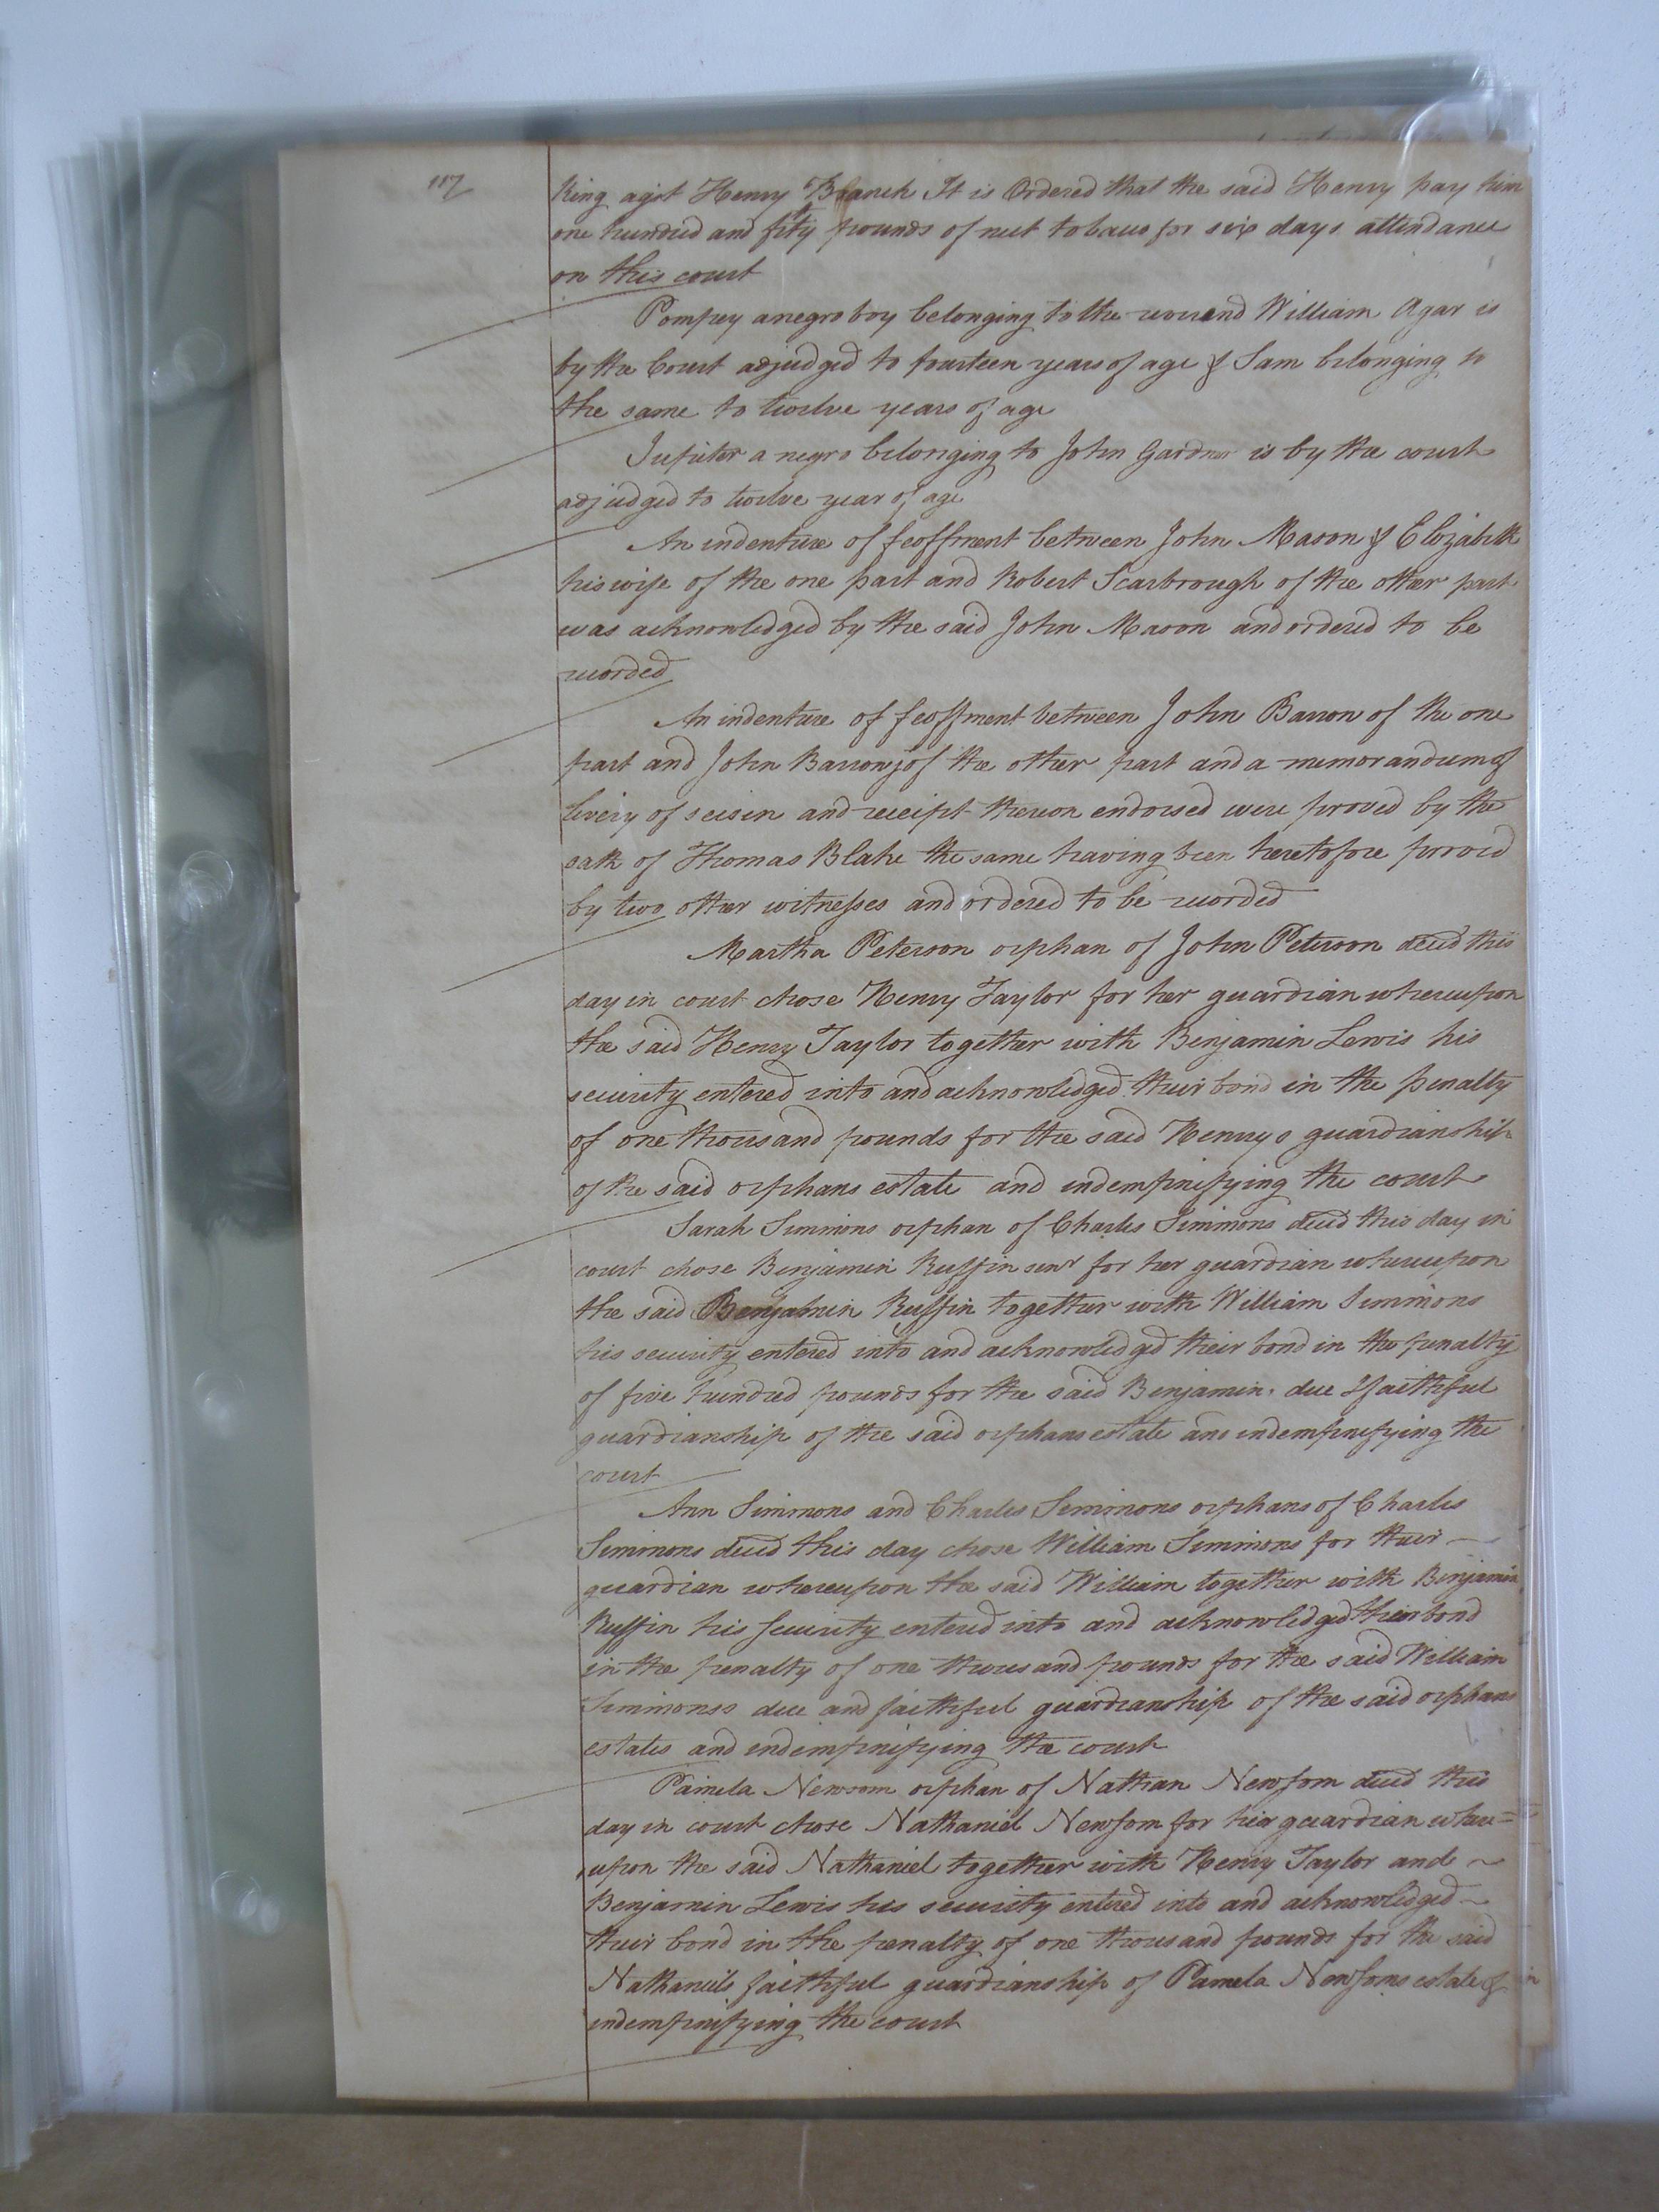 117
King agst Henry Branch It is Ordered that the said Henry pay him
one hundred and fify pounds of neet tobacco for six days attendance
on this court
Pompey a negro boy belonging to the reverend William Agar is
by the Court adjudged to fourteen years of age & Sam belonging to
the same to twelve years of age
Jupiter a negro belonging to John Gardner is by the court
adjudged to twelve year of age
An indenture of feoffment between John Mason & Elizabeth
his wife of the one part and Robert Scarbrough of the other part
was acknowledged by the said John Mason and ordered to be
recorded
An indenture of feoffment between John Barron of the one
part and John Barron j of the other part and a memorandum of
livery of seisin and receipt thereon endorsed were proved by the
oath of Thomas Blake the same having been heretofore proved
by two other witnesses and ordered to be recorded
Martha Peterson orphan of John Peterson decd this
day in court chose Henry Taylor for her guardian whereupon
the said Henry Taylor together with Benjamin Lewis his
security entered into and acknowledged their bond in the penalty
of one thousand pounds for the said Henrys guardianship
of the said orphans estate and indempnifying the court
Sarah Simmons orphan of Charles Simmons decd this day in
court chose Benjamin Ruffin senr for her guardian whereupon
the said Benjamin Ruffin together with William Simmons
his security entered into and acknowledged their bond in the penalty
of five hundred pounds for the said Benjamin. due & faithful
guardianship of the said orphans estate and indempnifying the
court
Ann Simmons and Charles Simmons orphans of Charles
Simmons decd this day chose William Simmons for their
guardian whereupon the said William together with Benjamin
Ruffin his security entered into and acknowledged their bond
in the penalty of one thousand pounds for the said William
Simmonss due and faithful guardianship of the said orphans
estates and indempnifying the court
Pamela Newsom orphan of Nathan Newsom decd this
day in court chose Nathaniel Newsom for her guardian where=
upon the said Nathaniel together with Henry Taylor and
Benjamin Lewis his security entered into and acknowledged
their bond in the penalty of one thousand pounds for the said
Nathaniels faithful guardianship of Pamela Newsoms estate &
indempnifying the court